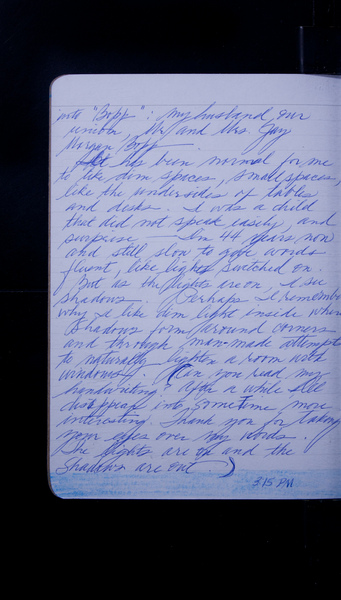 into "Bopp": my husband, our
union, Mr. and Mrs. Jay
Morgan Bopp.
It has been normal for me
to like dim spaces, small spaces,
like the undersides of tables
and desks. I was a child
that did not speak easily, and
surprise — I'm 44 years now
and still slow to give words
fluent, like lights switched on.
But as the lights are on, I see
shadows. Perhaps I remember
why I like dim light inside where
shadows form around corners
and through man-made attempts
to naturally lighten a room with
windows. (Can you read my
handwriting? After a while I'll
disappear into sometime more
interesting. Thank you for taking
your eyes over my words.
The lights are on and the
shadows are out.)
3:15 PM